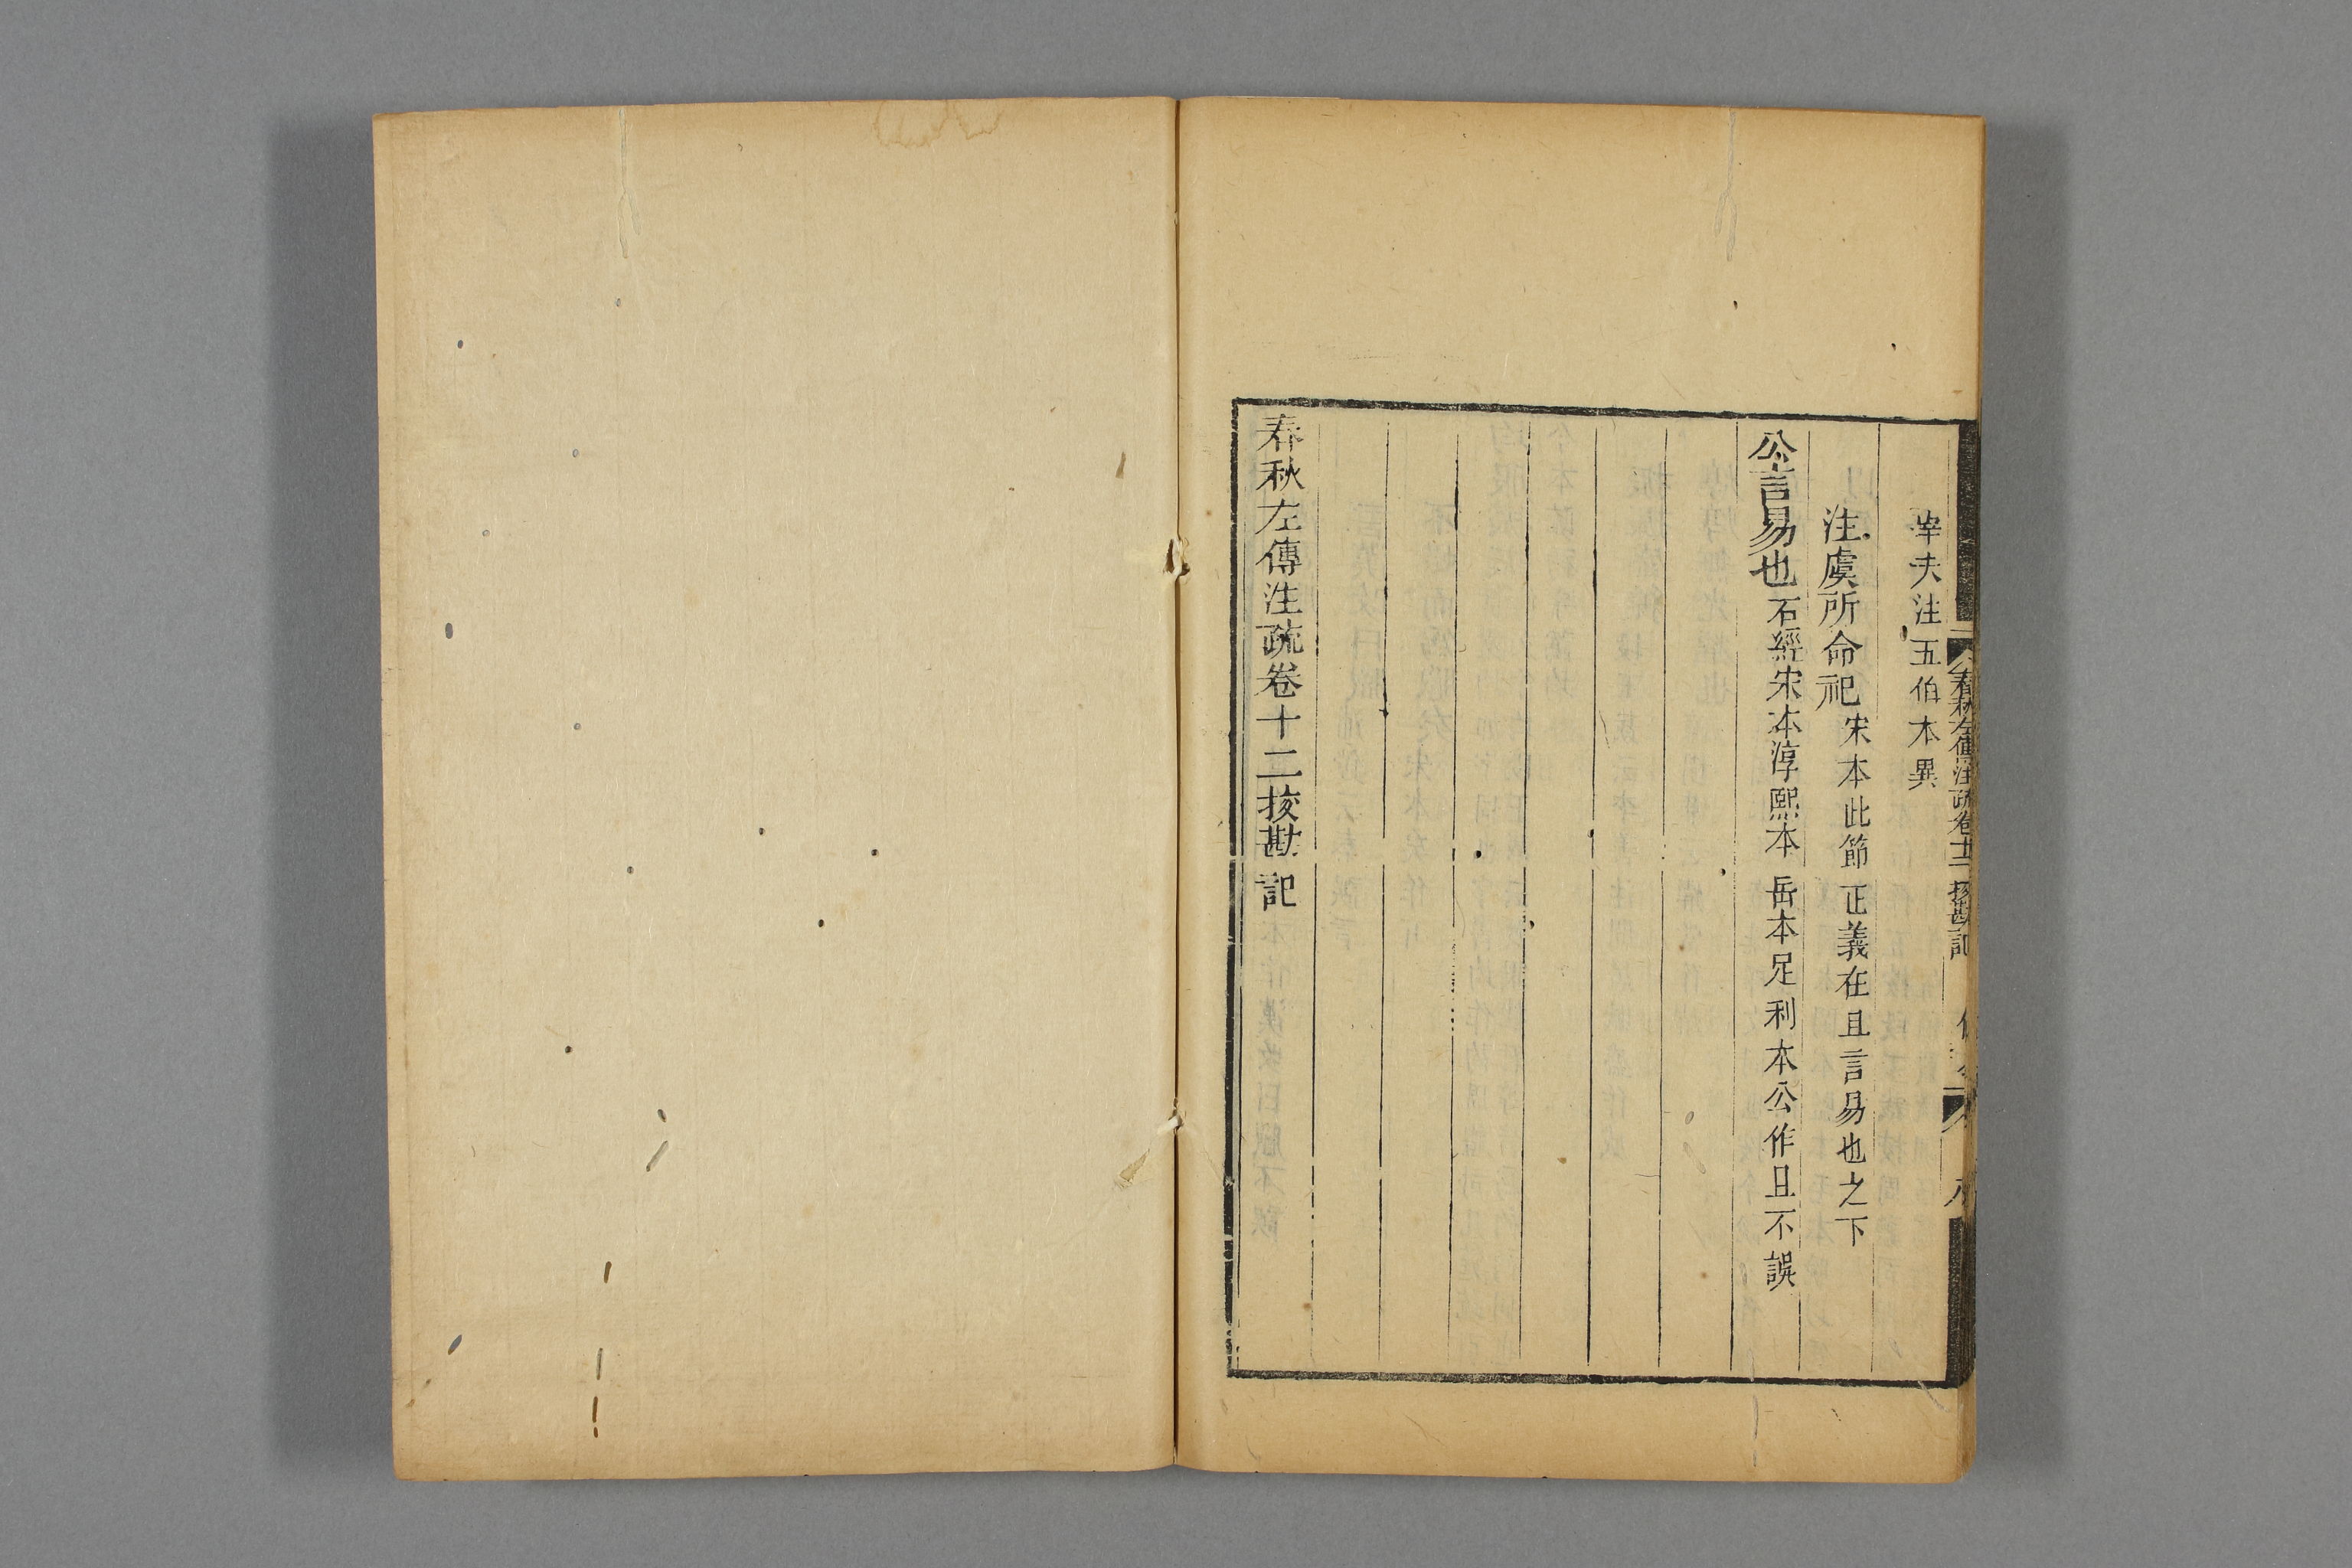 春秋左傳注疏卷十二挍勘記
宰夫注五伯本異
注虞所命祀宋本此節正義在且言易也之下
公言易也石經宋本淳熙本岳本足利本公作且不誤
春秋左傳注疏卷十二挍勘記